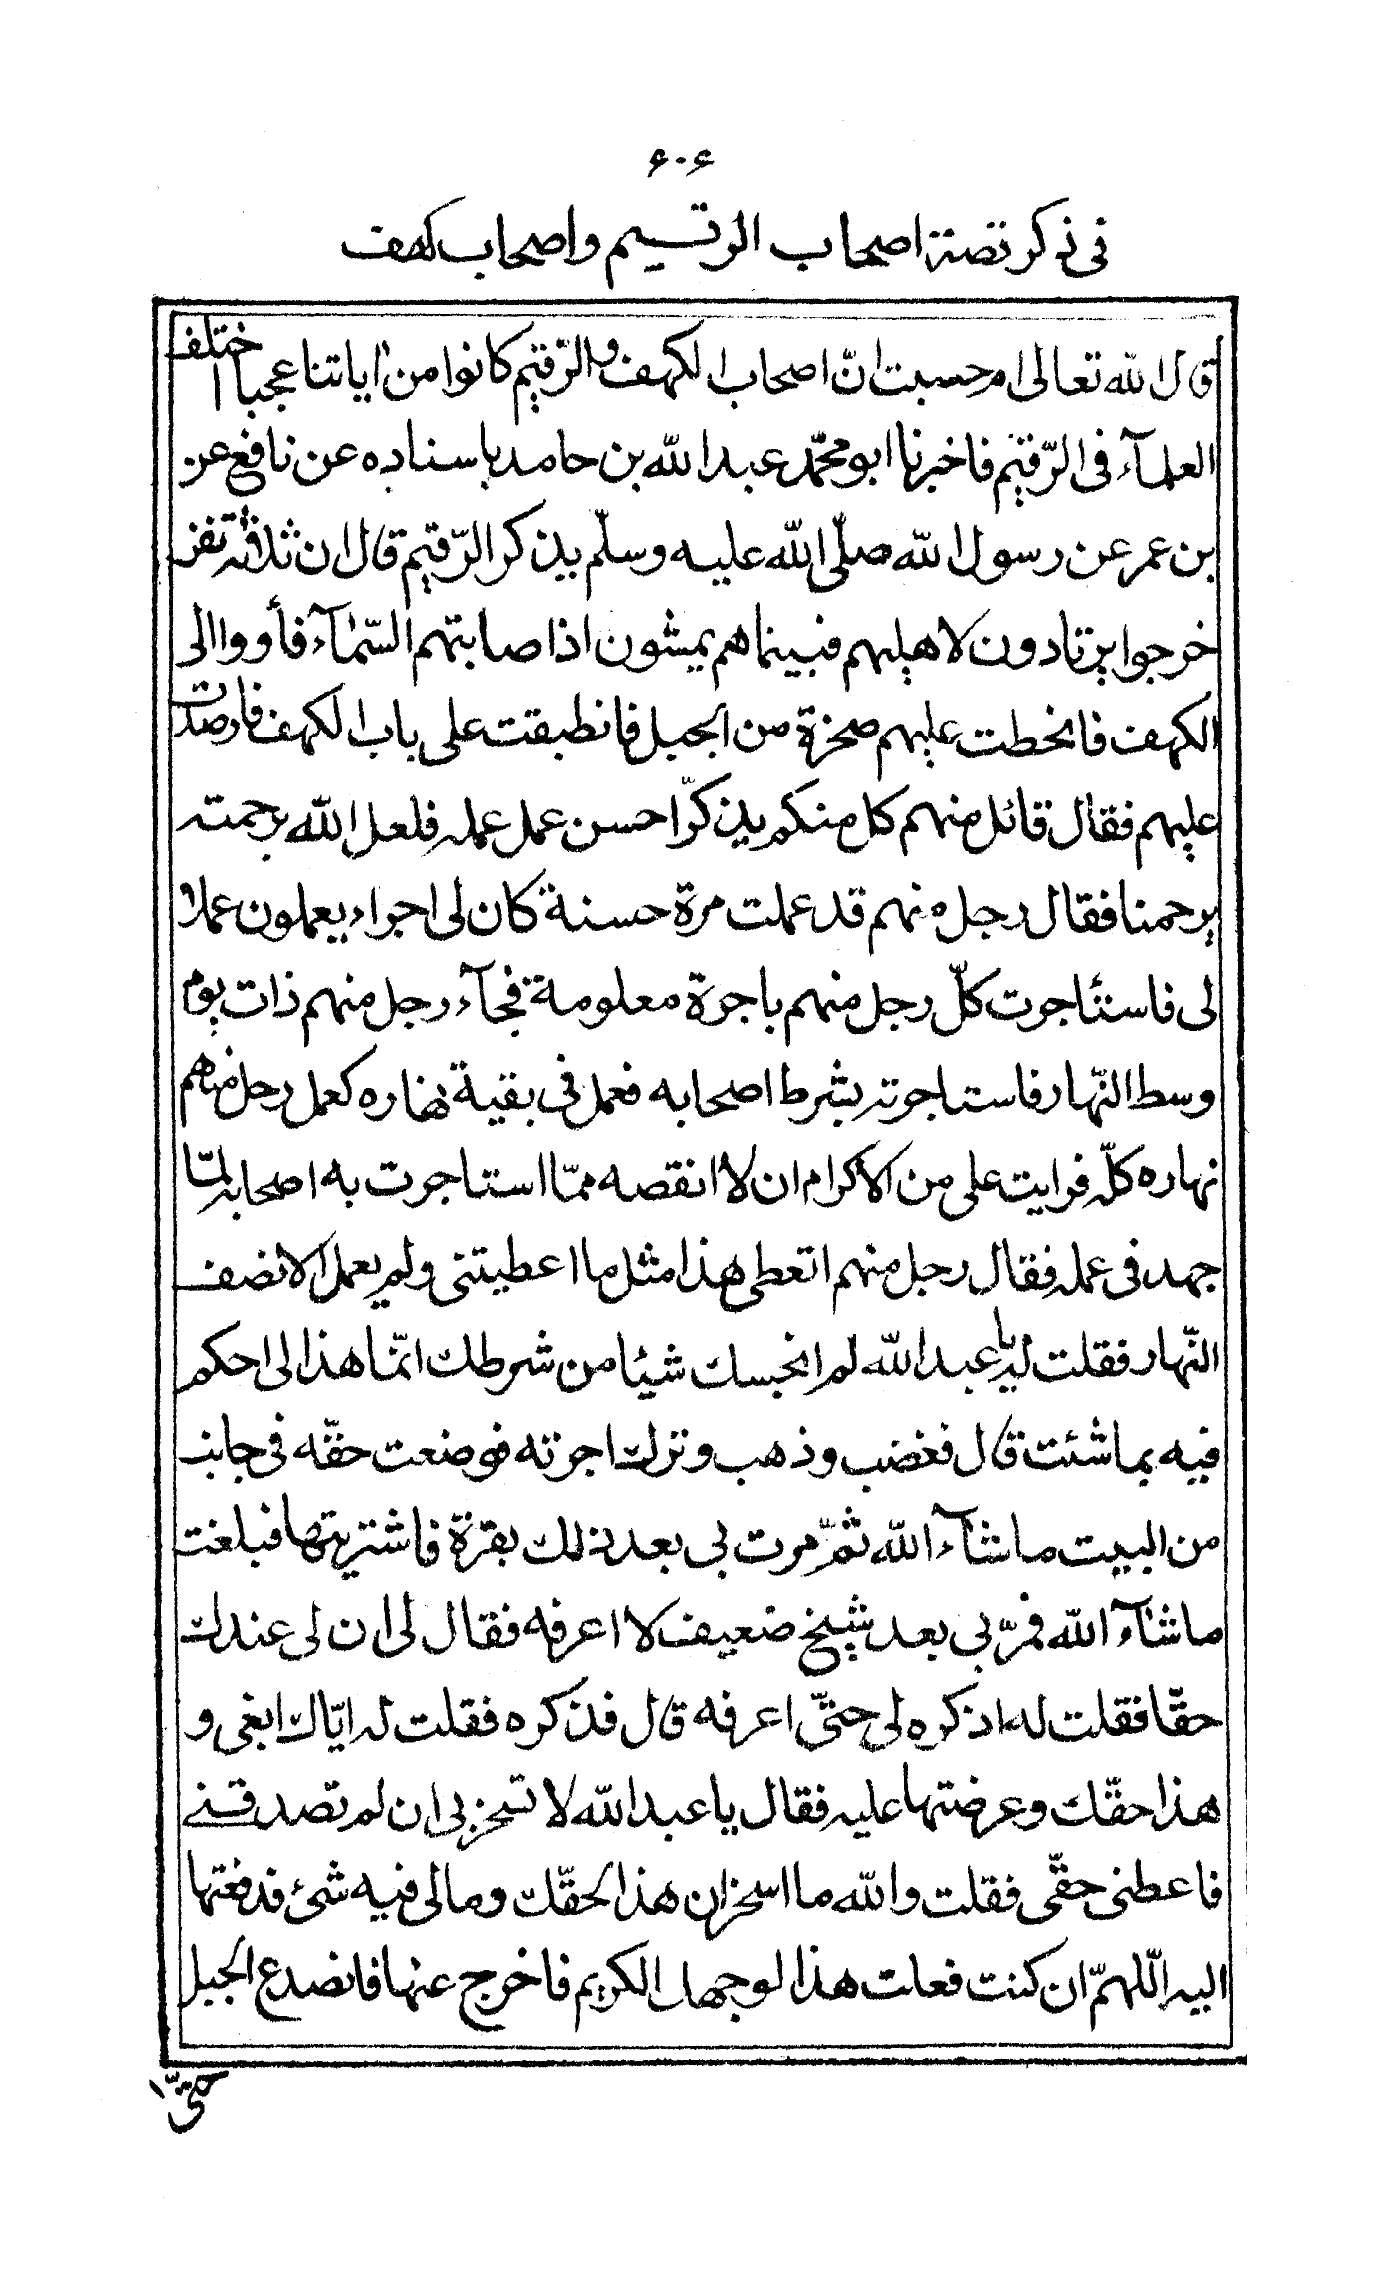 ۶۰۶
فى ذكر قصة اصحاب الرقيم واصحاب كهف
قال الله تعالى ام حسبت انّ اصحاب الكهف والرّقيم كانوا من اياتنا عجبا اختلف
العلمآء فى الرّقيم فاخبرنا ابو محمّد عبد الله بن حامد باسناده عن نافع عن
بن عمر عن رسول الله صلّى الله عليه وسلّم يذكر الرّقيم قال ان ثلاثة نفر
خرجوا يرتادون لاهليهم فبينما هم يمشون اذا صابتهم السّمآء فأووا الى
الكهف فانحطت عليهم صخرة من الجبل فانطبقت على باب الكهف فاوصدت
عليهم فقال قائل منهم كل منكم يذكرّ احسن عمل عمله فلعل الله برحمته
يرحمنا فقال رجل منهم قد عملت مرة حسنة كان لى اجراء يعملون عملا
لى فاستئاجرت كلّ رجل منهم باجرة معلومة فجآء رجل منهم ذات يوم
وسط النّهار فاستاجرته بشرط اصحابه فعمل فى بقية نهاره كعمل رجل منهم
نهاره كلّه فرايت على من الاكرام ان لا انقصه ممّا استاجرت به اصحابه لمّا
جهد فى عمله فقال رجل منهم اتعطى هذا مثل ما اعطيتنى ولم يعمل الا نصف
النّهار فقلت له يا عبد الله لم ابخسك شيئا من شرطك انمّا هذا الى احكم
فيه بما شئت قال فغضب وذهب وترك اجرته فوضعت حقّه فى جانب
من البيت ما شآء الله ثمّ مرت بى بعد ذلك بقرة فاشتريتها فبلغت
ما شآء الله فمرّ بى بعد شيخ ضعيف لا اعرفه فقال لى ان لى عندك
حقّا فقلت له اذكره لى حتىّ اعرفه قال فذكره فقلت له ايّاك ابغى و
هذا حقّك وعرضتها عليه فقال يا عبد الله لا تسخر بى ان لم تصدقنے
فاعطنى حقّى فقلت والله ما اسخر ان هذا لحقّك ومالى فيه شئ فدفعتها
اليه اللّهمّ ان كنت فعلت هذا لوجهك الكريم فاخرج عنها فانصدع الجبل
حتّى ا